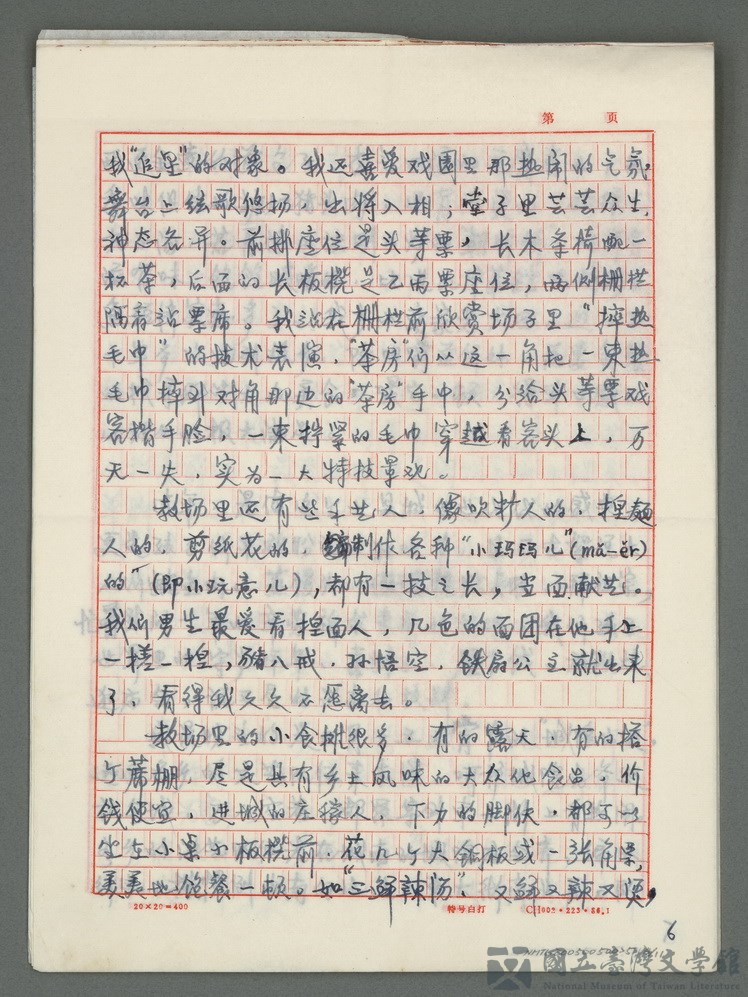 第 页
我“追星”的对象。我还喜爱戏园里那热闹的气氛,
舞台上弦歌悠扬,出将入相,堂子里芸芸众生,
神态各异。前排座位是头等票,长木条椅配一
杯茶,后面的长板櫈是乙丙票座位,两侧栅栏
隔着站票席。我站在栅栏前欣赏场子里“摔热
毛巾”的技术表演,“茶房”们从这一角把一束热
毛巾摔到对角那边的“茶房”手中,分给头等票戏
客揩手脸,一束拧紧的毛巾穿越看客头上,万
无一失,实为一大特技景观。
教场里还有些手艺人,像吹糖人的,捏麵
人的,剪纸花的,编制作各种“小玛玛儿”(mā-ěr)
的”(即小玩意儿),都有一技之长,当面献艺。
我们男生最爱看捏面人,几色的面团在他手上
一搓一捏,豬八戒,孙悟空,铁扇公主就出来
了,看得我久久不愿离去。
教场里的小食摊很多,有的露天,有的搭
个蓆棚,尽是具有乡土风味的大众化食品,价
钱便宜,进城的庄稼人,下力的脚伕,都可以
坐在小桌小板櫈前,花几个大铜板或一张角票,
美美地饱餐一顿。如“三鲜辣汤”,又鲜又辣又烫,
20×20=400 特号白打 CH002·223·86.1
6
國立臺灣文學館
National Museum of Taiwan Literature